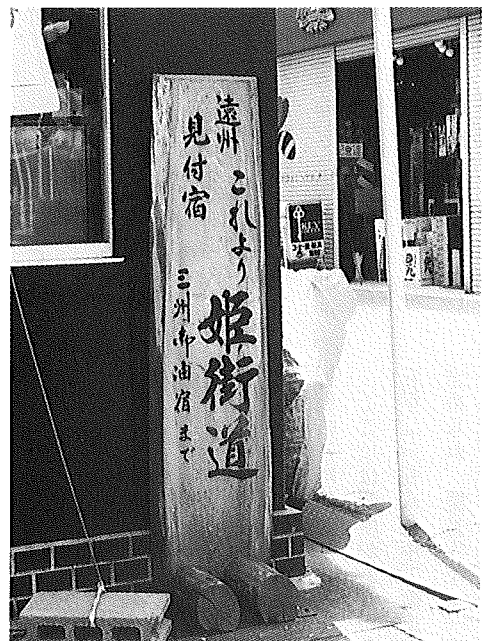 遠州
見付宿
これより姫街道
三州御油宿まで